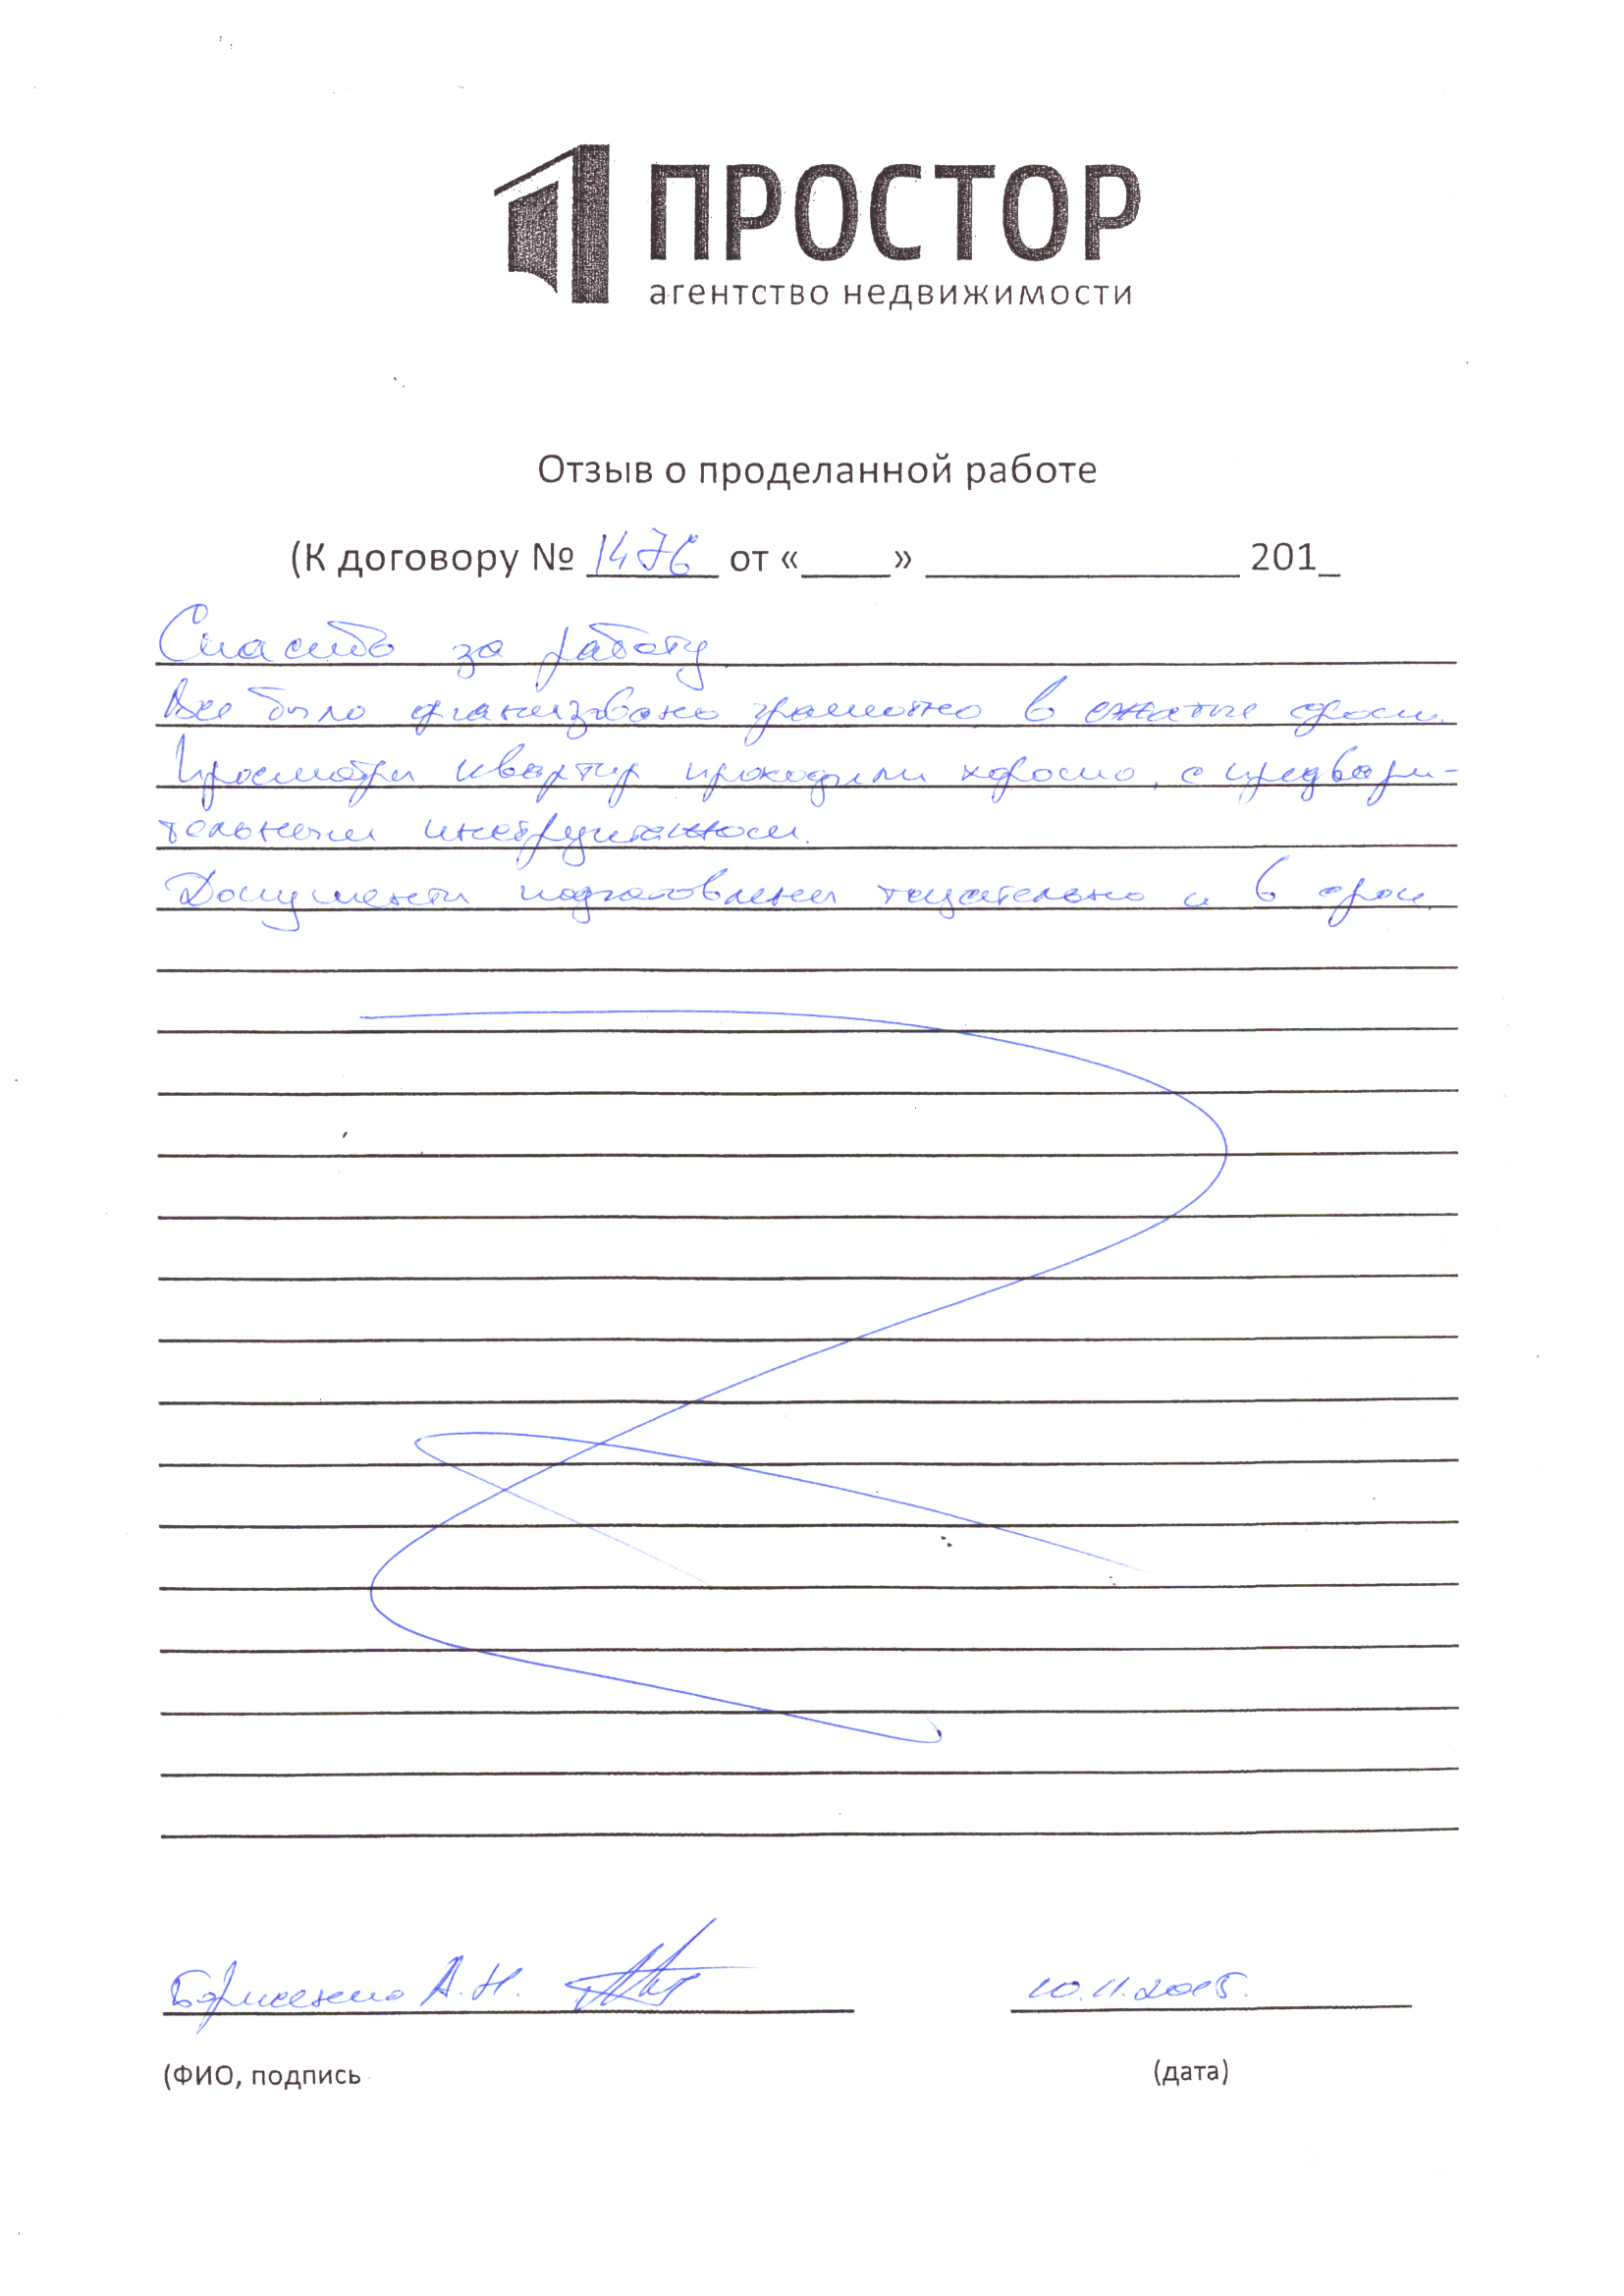 ПРОСТОР
агентство недвижимости
Отзыв о проделанной работе
(К договору № 1476 от «____» ______________ 201_
Спасибо за работу
Все было организовано грамотно в сжатые сроки.
Просмотры квартир проходили хорошо, с предвари-
тельным инструктажом.
Документы подготовлены тщательно и в срок.
А.Н.
10.11.2015.
(ФИО, подпись
(дата)